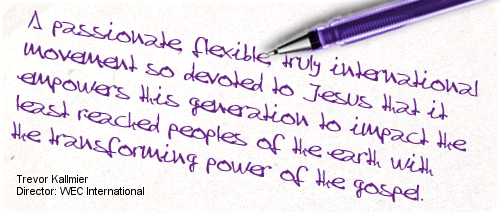 A passionate, flexible, truly international
movement so devoted to Jesus that it
empowers this generation to impact the
least reached peoples of the earth with
the transforming power of the gospel.
Trevor Kallmier
Director: WEC International